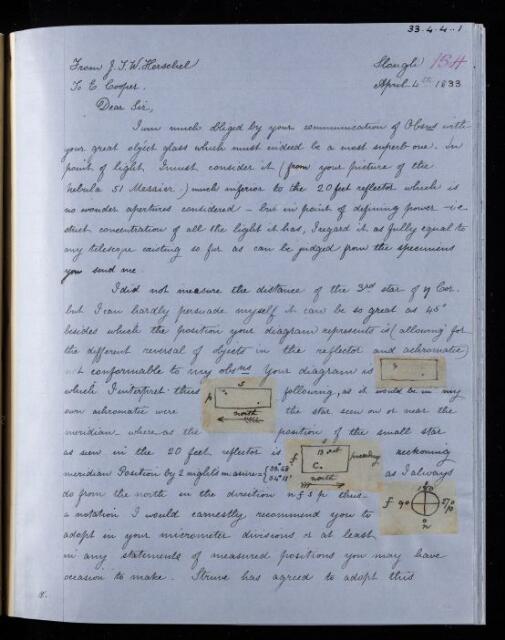 33.4.4.1
From J. F. W. Herschel
Slough 154
To E Cooper.
April 4th 1833
Dear Sir,
I am much obliged by your communication of Obsns with
your great object glass which must indeed be a most superb one. In
point of light I must consider it (from your picture of the
Nebula 51 Messier) much inferior to the 20 feet reflector which is
no wonder apertures considered - but in point of defining power - i.e
strict concentration of all the light it has, I regard it as fully equal to
any telescope existing so far as can be judged from the specimens
you send me.
I did not measure the distance of the 3rd star of η Cor.
but I can hardly persuade myself it can be so great as 45"
besides which the position your diagram represents is (allowing for
the different reversal of objects in the reflector and achromatic)
not conformable to my obsns Your diagram is
which I interpret thus
s
p
north
following, as it would be in my
own achromatic were
the star seen on or near the
meridian where as the
position of the small star
as seen in the 20 feet reflector is
f
C.
preceding
north
reckoning
meridian Position by 2 nights measure =
as I always
do from the north in the direction n f s p thus
a notation I would earnestly recommend you to
f 90
180
270
p
0
n
adopt in your micrometer divisions or at least
in any statements of measured positions you may have
occasion to make. Struve has agreed to adopt this